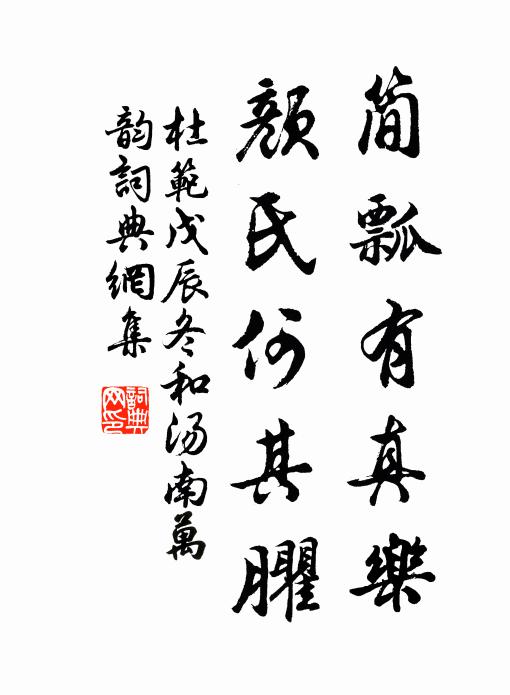 简瓢有真樂
顏氏何其臞
杜範戊辰冬和湯南萬
韵詞典網集
詞典
网印